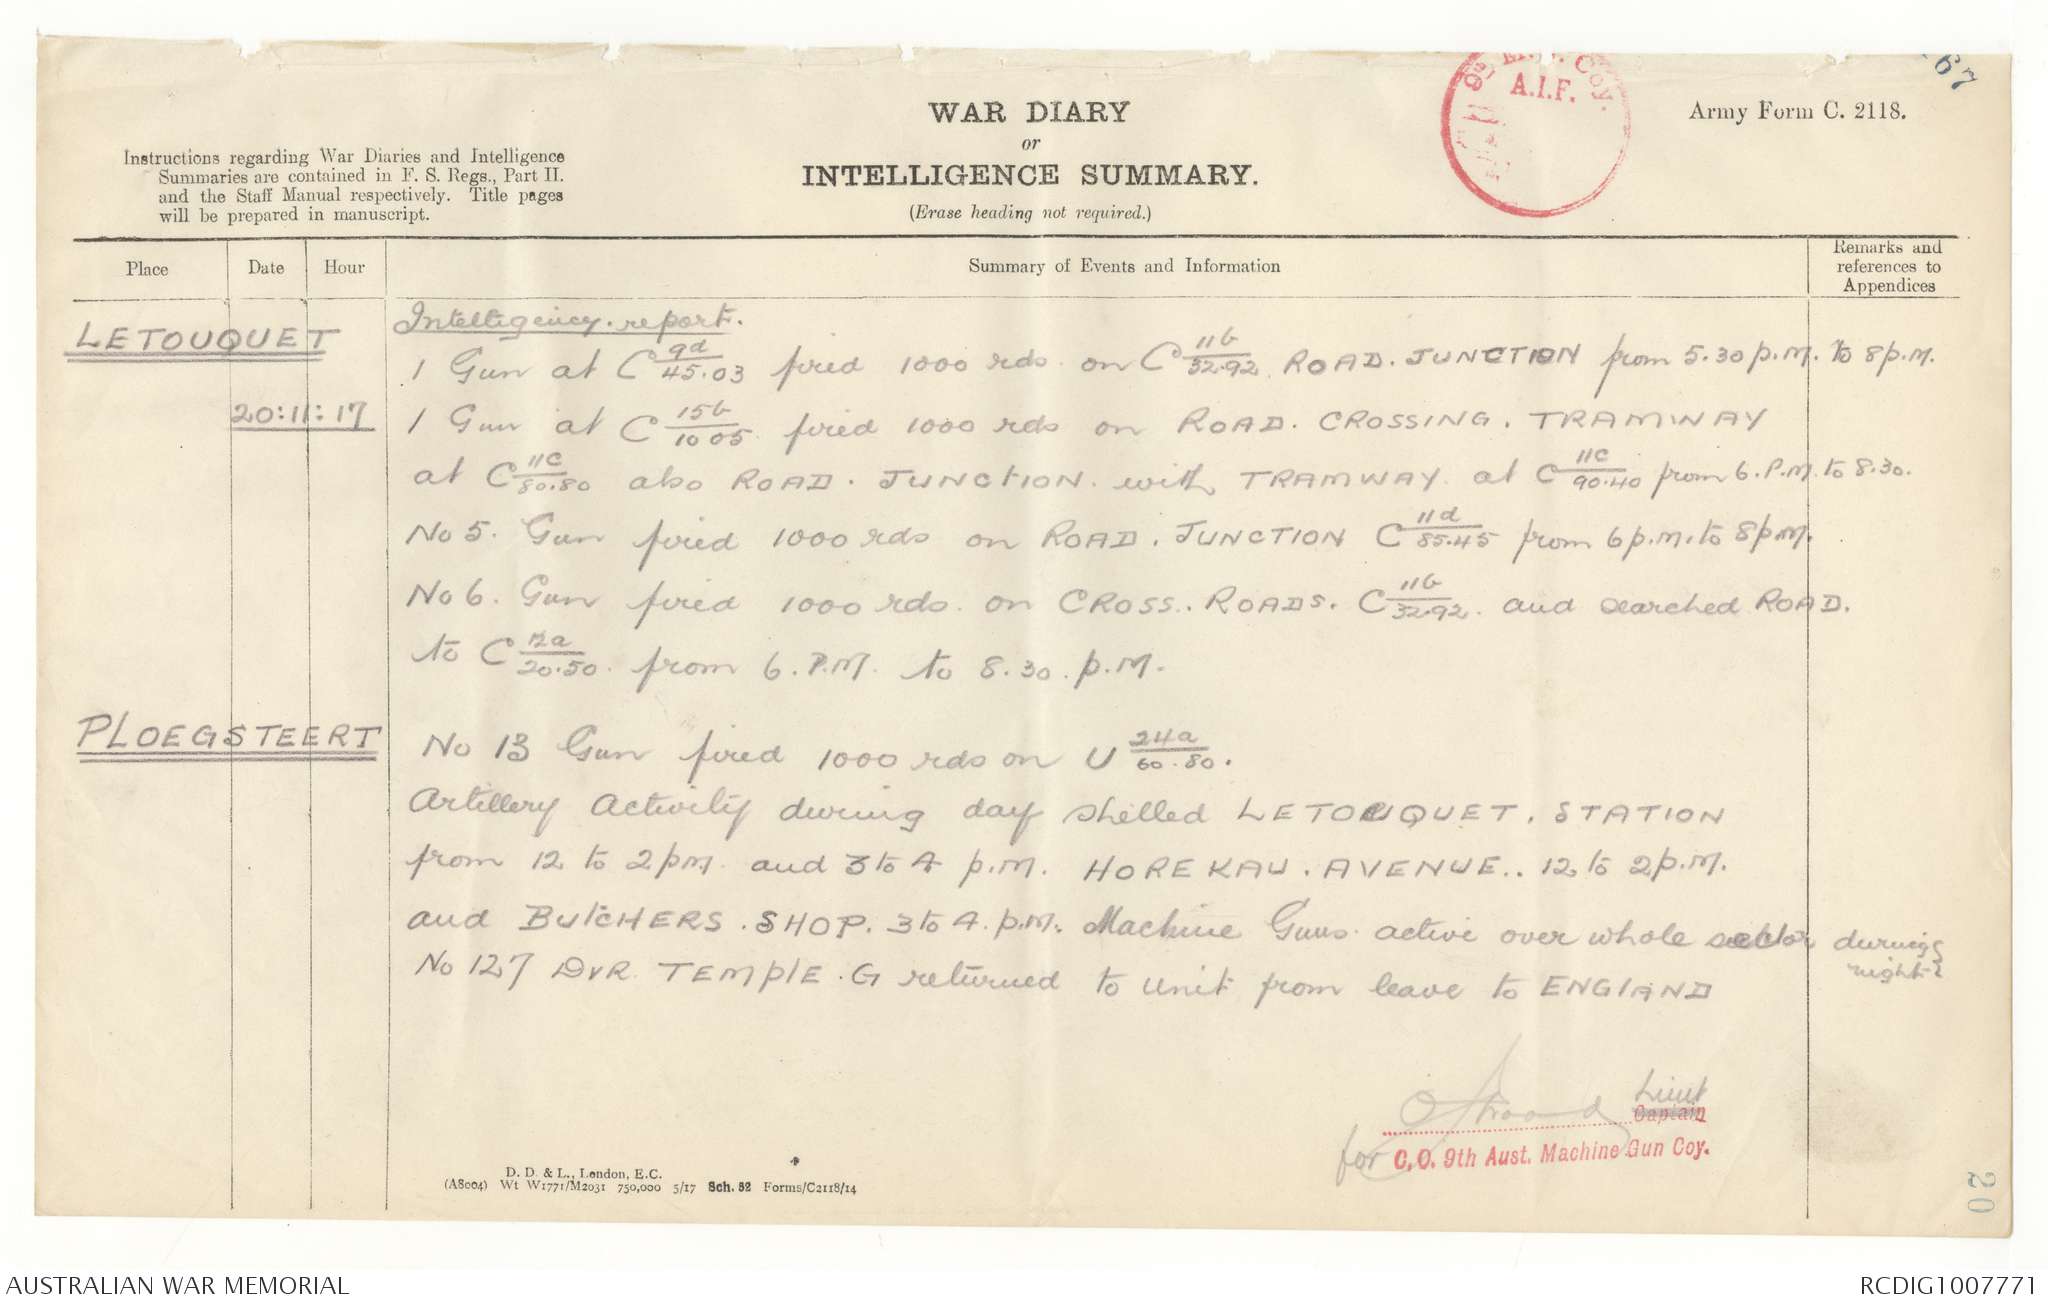 67
WAR DIARY
or
INTELLIGENCE SUMMARY.
(Erase heading not required.)
Army Form C. 2118.
Coy.
A.I.F.
Instructions regarding War Diaries and Intelligence
Summaries are contained in F. S. Regs., Part II.
and the Staff Manual respectively. Title pages
will be prepared in manuscript.
Place
Date
Hour
Summary of Events and Information
Remarks and
references to
Appendices
LETOUQUET
Intelligency. report.
1 Gun at C 9d/45.03 fired 1000 rds. on C 11b/32.92 ROAD. JUNCTION from 5.30 p.M. to 8 p.M.
20:11:17
1 Gun at C 15b/10 05 fired 1000 rds on ROAD. CROSSING. TRAMWAY
at C 11c/80.80 also ROAD. JUNCTION. with TRAMWAY. at C 11c/90.40 from 6. P.M. to 8.30.
No 5. Gun fired 1000 rds on ROAD. JUNCTION C 11d/85.45 from 6 p.m. to 8 p.m.
No 6. Gun fired 1000 rds. on CROSS. ROADS. C 11b/32.92. and searched ROAD.
to C 12a/20.50. from 6. P.M. to 8.30. p.M.
PLOEGSTEERT
No 13 Gun fired 1000 rds on U 24a/60.80.
Artillery Activity during day shelled LETOUQUET. STATION
from 12 to 2 pm. and 3 to 4 p.m. HOREKAU. AVENUE.. 12 to 2 p.M.
and BUtCHERS. SHOP. 3 to 4. p.m. Machine Guns active over whole sector during
night
No 127 DVR. TEMPlE. G returned to unit from leave to ENGlAND
Lieut
Captain
for C.O. 9th Aust. Machine Gun Coy.
D. D. & L., London, E.C.
(A8004) Wt W1771/M2031 750,000 5/17 Sch. 52 Forms/C2118/14
20
AUSTRALIAN WAR MEMORIAL
RCDIG1007771